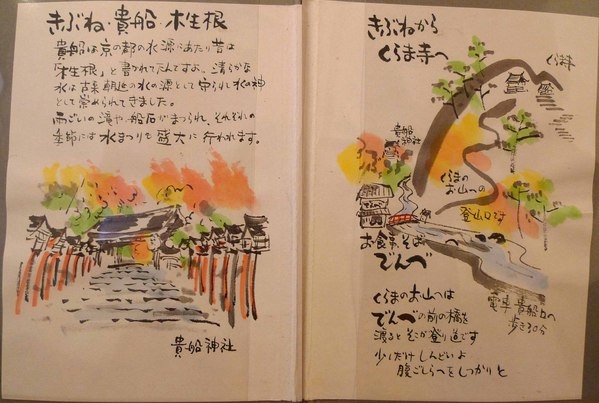 きぶね・貴船・木生根
貴船は京の都の水源にあたり昔は
「木生根」と書かれてたんですよ。清らかな
水は古来朝廷の水の源として守られ水の神
として崇められてきました。
雨ごいの滝や船石がまつられ、それぞれの
季節には水まつりも盛大に行われます。
貴船神社
きぶねから
くらま寺へ
くらま寺
貴船
神社
くらまの
お山への
登山口です
お食事そば
でんべ
電車貴船口へ
歩き30分
くらまのお山へは
でんべの前の橋を
渡るとそこが登り道です
少しだけしんどいよ
腹ごしらへをしっかりと